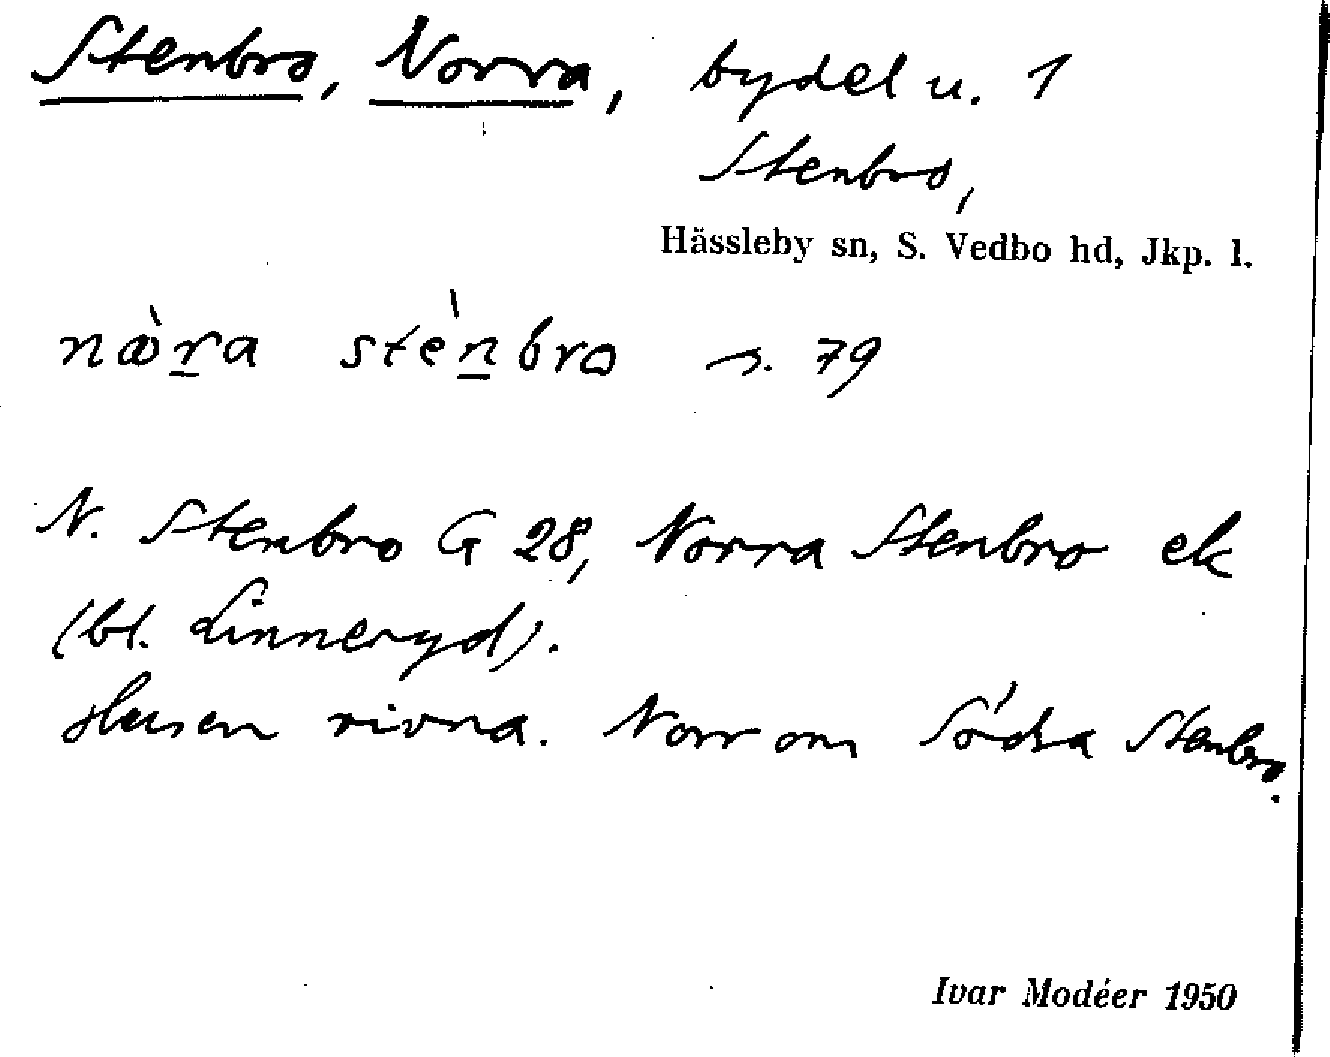 Stenbro, Norra, bydel u. 1
Stenbro,
Hässleby sn, S. Vedbo hd, Jkp. l.
nò̀ra stènbro s. 79
N. Stenbro G 28, Norra Stenbro ek
(bl. Linneryd).
Husen rivna. Norr om Södra Stenbro.
Ivar Modéer 1950